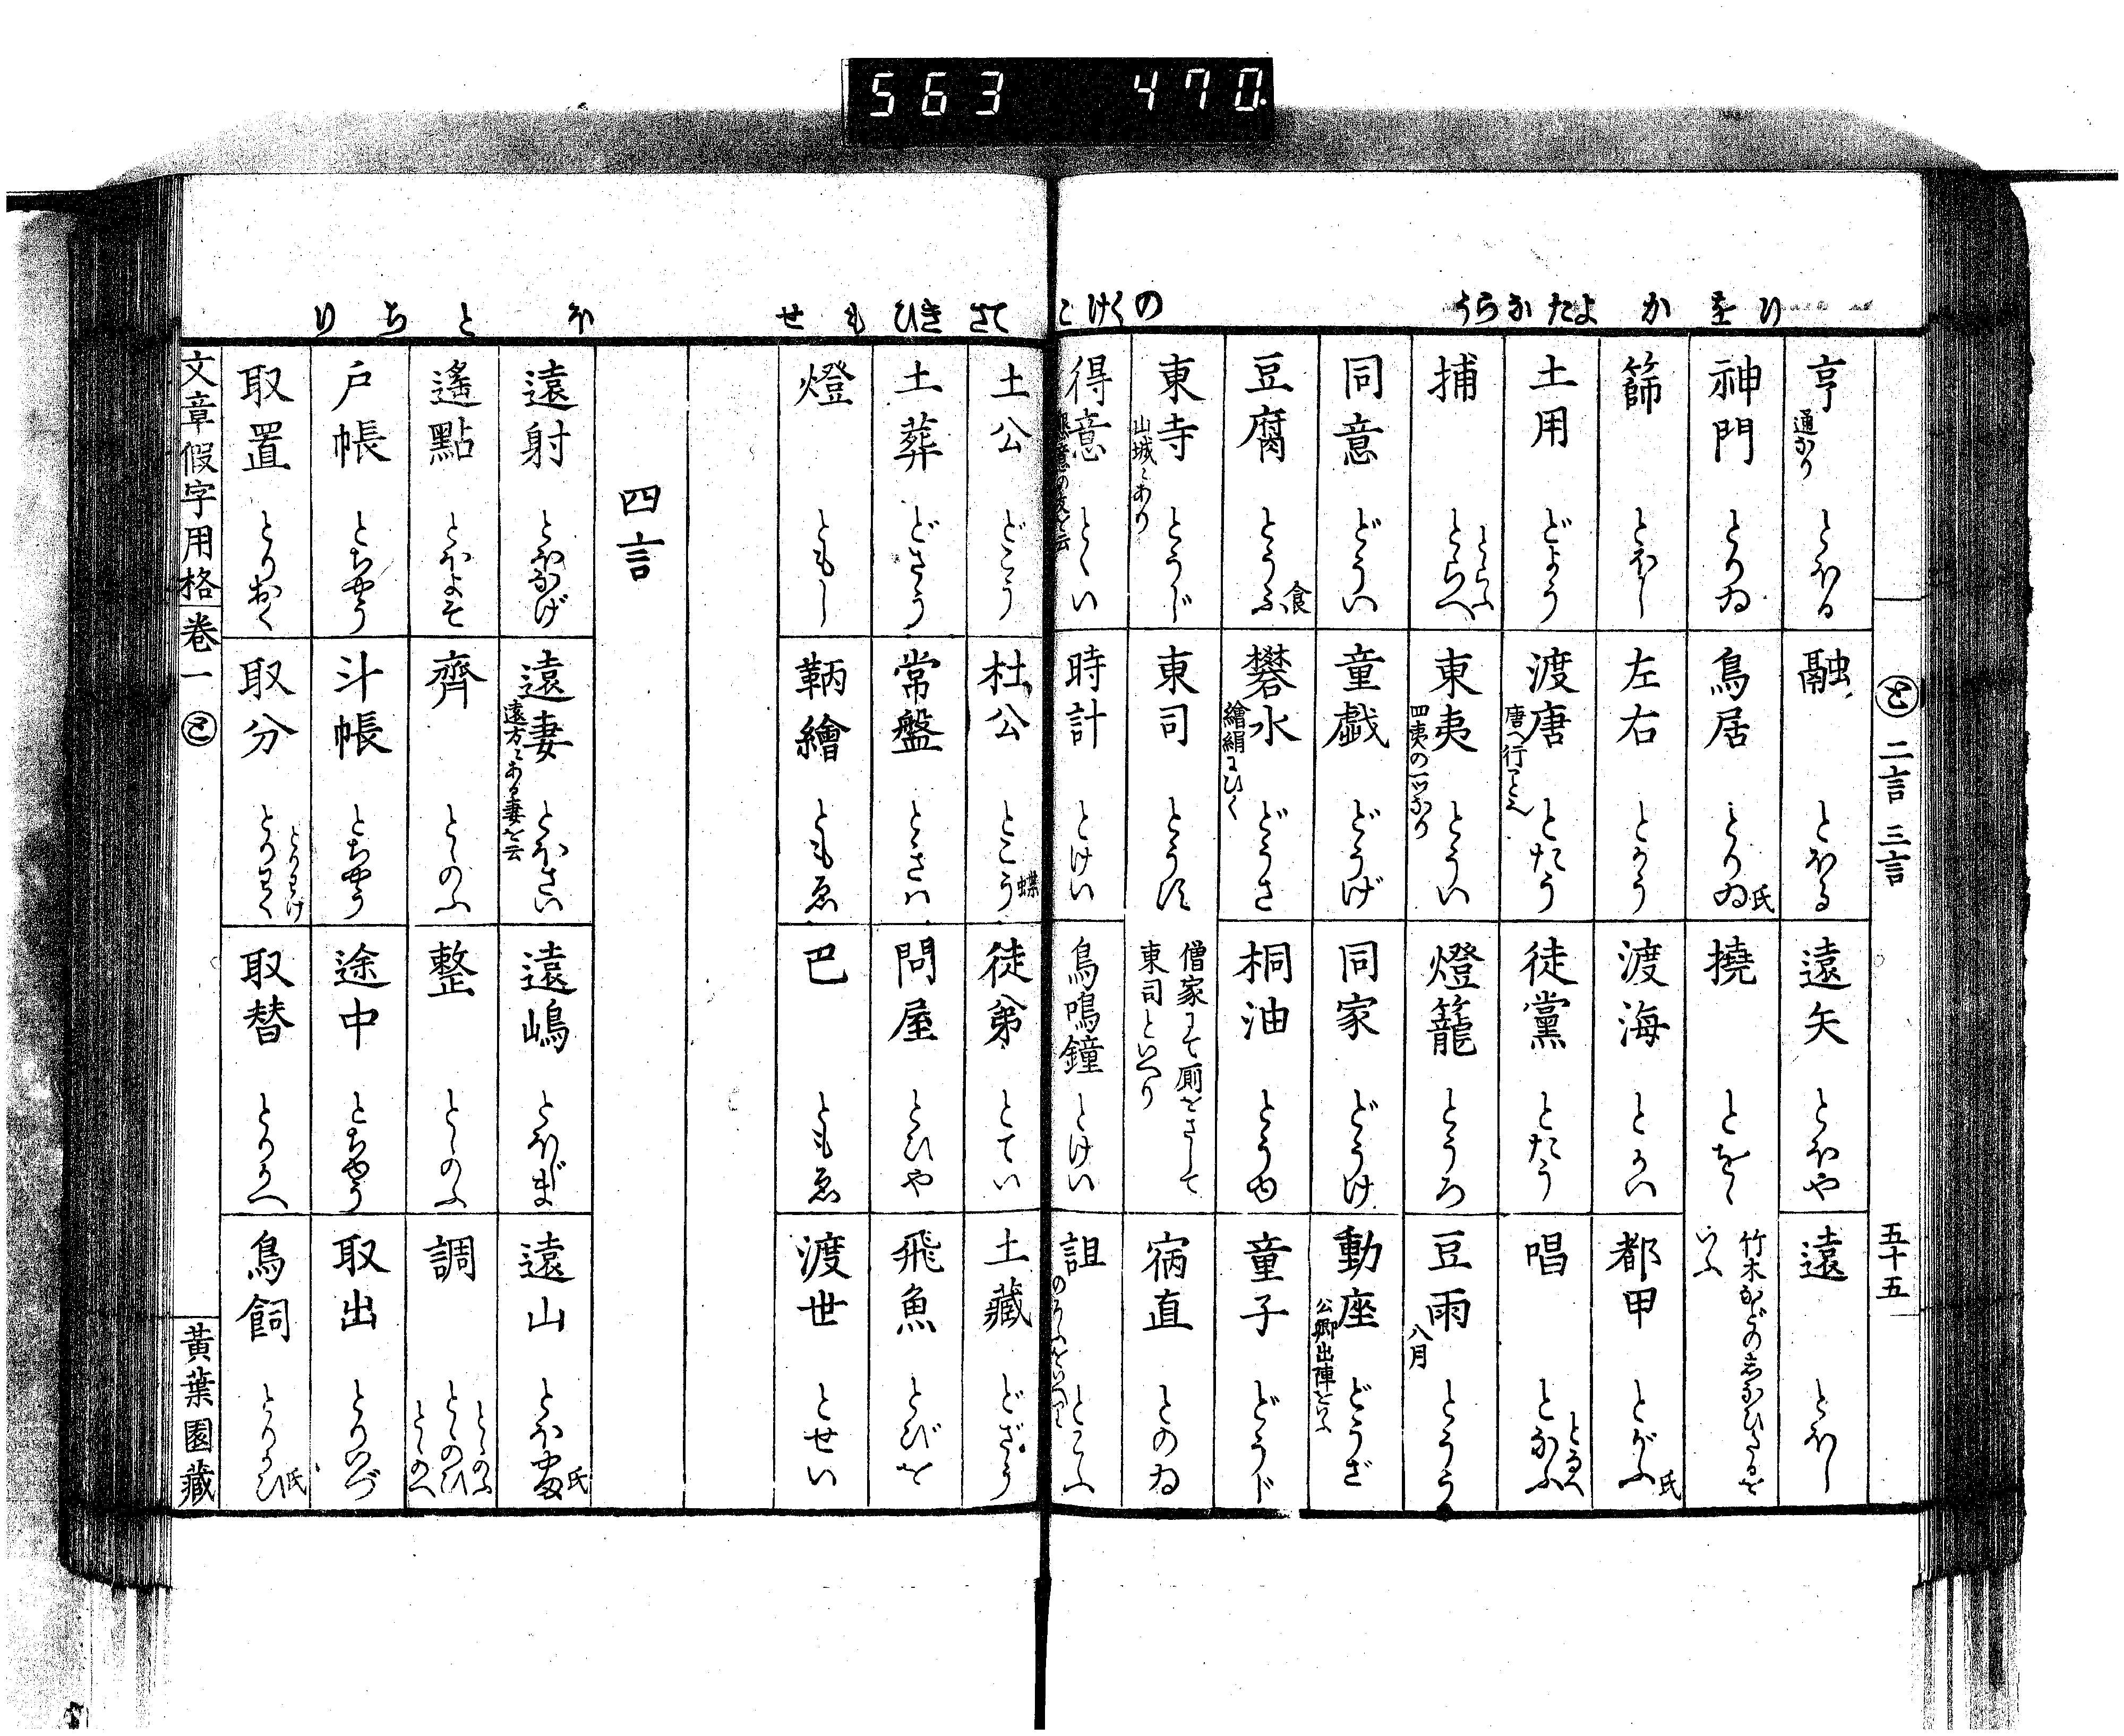 563 470
と 二言 三言 五十五
亨 通なり とほる
融 とほる
遠矢 とほや
遠 とほし
神門 とりゐ
鳥居 とりゐ 氏
撓 とをゝ 竹木などのしなひたるをいふ
篩 とほし
左右 とかう
渡海 とかい
都甲 とがふ 氏
土用 どよう
渡唐 とたう
徒黨 とたう
唱 となふ となへ
捕 とらへ とらふ
東夷 とうい 四夷の一ツなり
燈籠 とうろ
豆雨 とうう 八月
同意 どうい
童戯 どうげ
同家 どうけ
動座 どうざ 公卿出陣をいふ
豆腐 とうふ 食
礬水 どうさ 繪絹にひく
桐油 とうゆ
童子 どうじ
東寺 とうじ 山城にあり
東司 とうす 僧家にて厠をさして東司といへり
宿直 とのゐ
得意 とくい
時計 とけい
鳥鳴鐘 とけい
詛 とこふ
土公 どこう
杜公 とこう 蝶
徒弟 とてい
土藏 どざう
土葬 どさう
常盤 ときハ
問屋 とひや
飛魚 とびを
燈 ともし
鞆繪 ともゑ
巴 ともゑ
渡世 とせい
四言
遠射 とほなげ
遠妻 とほさい 遠方にある妻を云
遠嶋 とほじま
遠山 とほやま 氏
遙點 とほよそ
齊 とゝのふ
整 とゝのふ
調 とゝのひ とゝのふ とゝのへ
戸帳 とちやう
斗帳 とちやう
途中 とちやう
取出 とりいづ
取置 とりおく
取分 とりわく とりわけ
取替 とりかへ
鳥飼 とりかひ 氏
文章假字用格 卷一 と 黃葉園藏